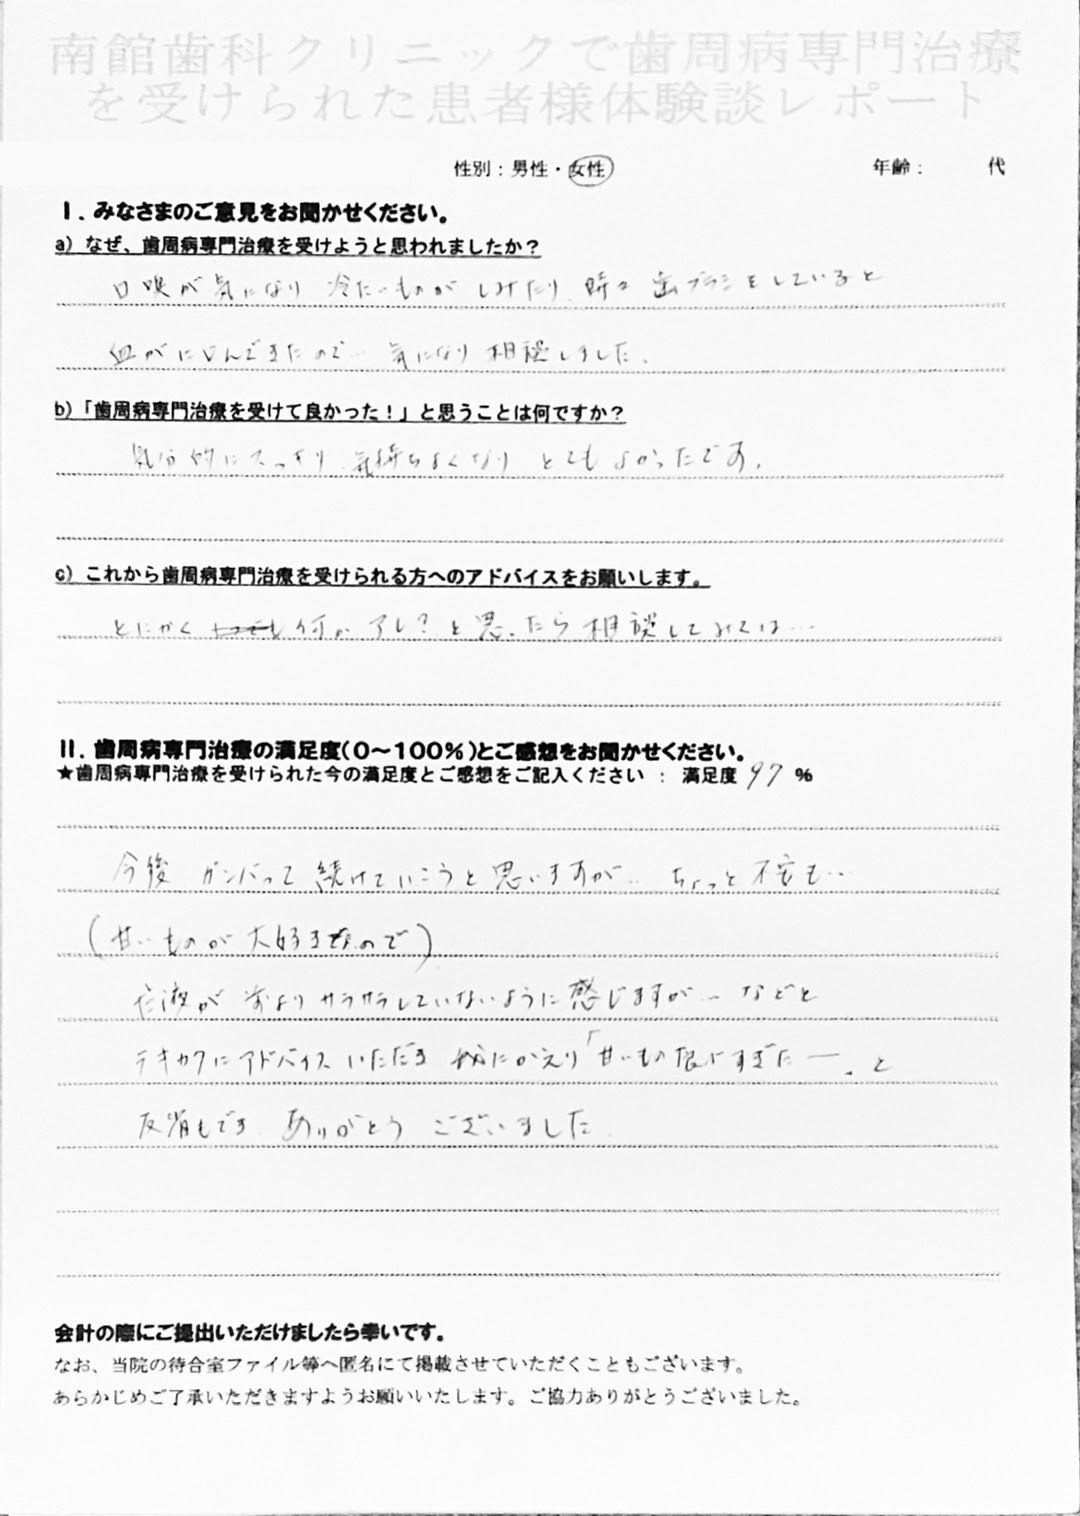 南館歯科クリニックで歯周病専門治療
を受けられた患者様体験談レポート
性別：男性・女性 年齢： 代
Ⅰ．みなさまのご意見をお聞かせください。
a）なぜ、歯周病専門治療を受けようと思われましたか？
口臭が気になり 冷たいものが しみたり、時々 歯ブラシをしていると
血がにじんできたので… 気になり 相談しました、
b）「歯周病専門治療を受けて良かった！」と思うことは何ですか？
気分的にスッキリ、気持ちよくなり とてもよかったです。
c）これから歯周病専門治療を受けられる方へのアドバイスをお願いします。
とにかく 何か アレ？と思ったら相談してみては…
Ⅱ．歯周病専門治療の満足度（0～100％）とご感想をお聞かせください。
★歯周病専門治療を受けられた今の満足度とご感想をご記入ください ： 満足度 97 ％
今後 ガンバって 続けていこうと思いますが… ちょっと不安も…
（甘いものが大好きなので）
唾液が 前より サラサラしていないように感じますが… などと
テキカクにアドバイス いただき 我にかえり「甘いもの 食べすぎたー。と
反省もです ありがとう ございました
会計の際にご提出いただけましたら幸いです。
なお、当院の待合室ファイル等へ匿名にて掲載させていただくこともございます。
あらかじめご了承いただきますようお願いいたします。ご協力ありがとうございました。